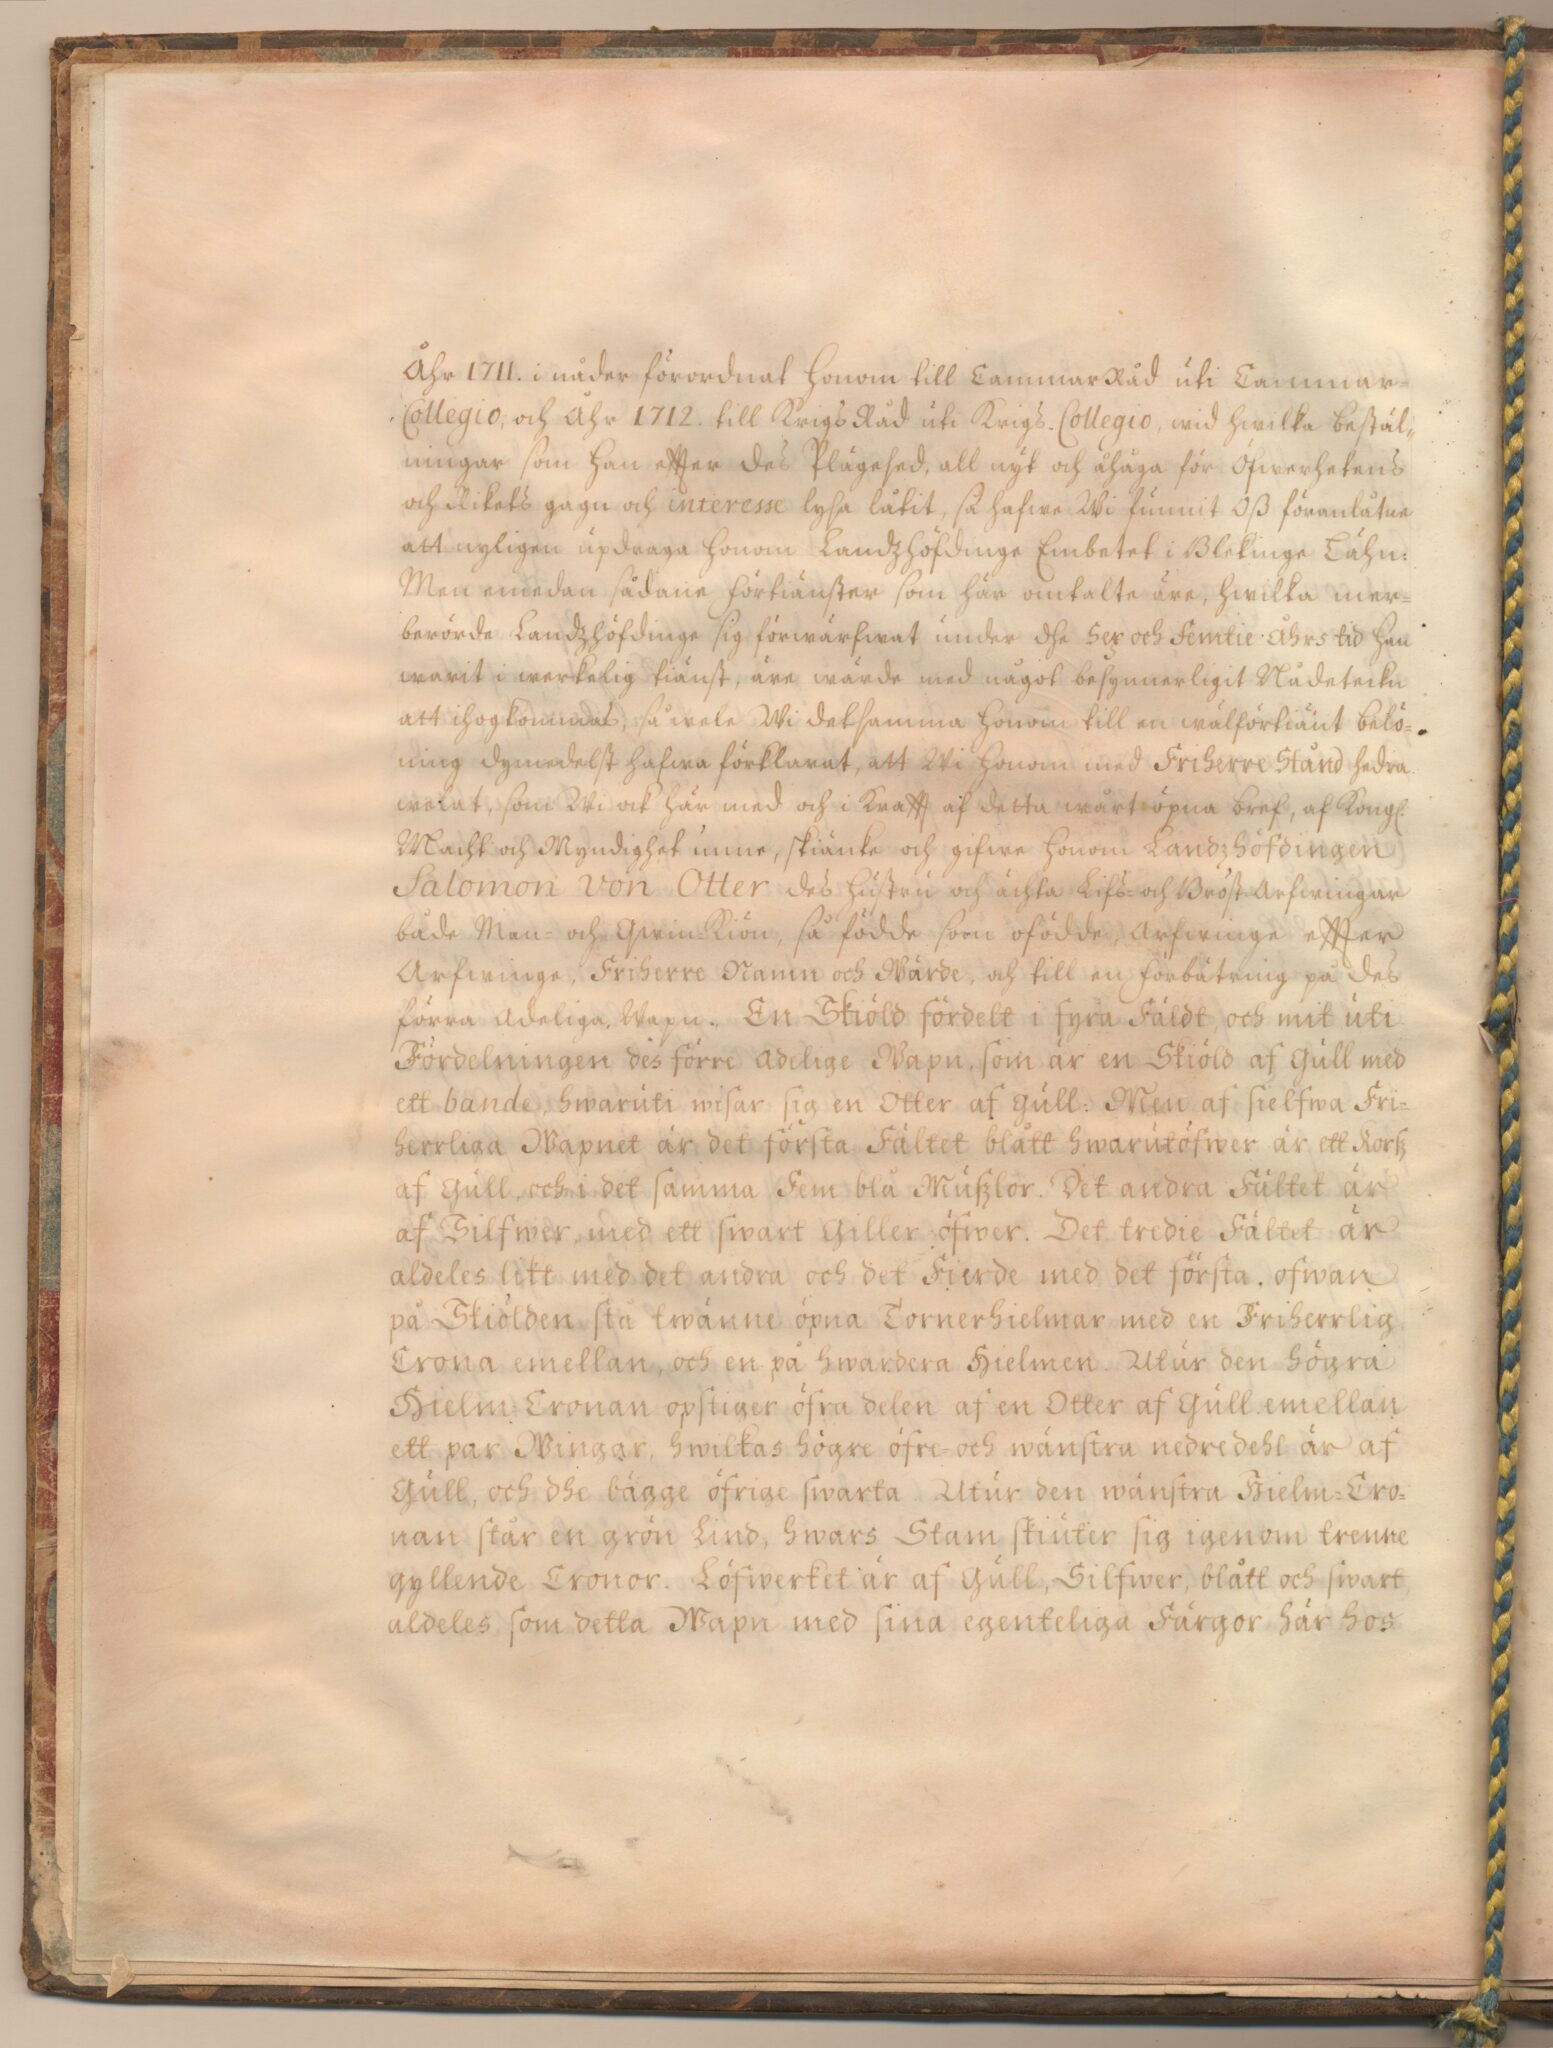 Åhr 1711. i nåder förordnat honom till Cammar Råd uti Cammar=
Collegio, och Åhr 1712. till Krigs Råd uti Krigs. Collegio, wid hwilka bestäl=
ningar som han effter des Plägesed, all nyt och åhåga för Öfwerhetens
och Rikets gagn och interesse lysa låtit, så hafwe Wi funnit Oß föranlåtne
att nyligen updraga honom Landzhöfdinge Embetet i Blekinge Lähn:
Men emedan sådane förtiänster som här omtalte äre, hwilka mer=
berörde Landzhöfdinge sig förwärfwat under dhe Sex och Femtie Åhrs tid han
warit i werkelig tiänst, äre wärde med något besynnerligit Nådetekn
att ihogkommas, så wele Wi detsamma honom till en wälförtiänt belö=
ning dymedelst hafwa förklarat, att Wi honom med Friherre Stånd hedra
welat, som Wi ock här med och i Krafft af detta wårt öpna bref, af Kongl.
Macht och Myndighet unne, skiänke och gifwe honom Landzhöfdingen
Salomon von Otter des hustru och ächta Lifs- och Bröst Arfwingar
både Man- och Qwin-Kiön, så födde som ofödde, Arfwinge effter
Arfwinge, Friherre Namn och Wärde, och till en förbätring på des
förra Adeliga Wapn., En Skiöld fördelt i fyra Fäldt, och mit uti
Fördelningen des förre Adelige Wapn, som är en Skiöld af Gull med
ett bande, hwaruti wisar sig en Otter af Gull: Men af sielfwa Fri=
herrliga Wapnet är det första Fältet blått hwarutöfwer är ett Korß
af Gull, och i det samma Fem blå Mußlor. Det andra Fältet är
af Silfwer, med ett swart Giller öfwer. Det tredie Fältet är
aldeles litt med det andra och det Fierde med det första. ofwan
på Skiölden stå twänne öpna Tornerhielmar med en Friherrlig
Crona emellan, och en på hwardera Hielmen. Utur den högra
Hielm-Cronan opstiger öfra delen af en Otter af Gull emellan
ett par Wingar, hwilkas högre öfre- och wänstra nedre dehl är af
Gull, och dhe bägge öfrige swarta. Utur den wänstra Hielm=Cro=
nan står en grön Lind, hwars Stam skiuter sig igenom trenne
gyllende Cronor. Löfwerket är af Gull, Silfwer, blått och swart,
aldeles som detta Wapn med sina egenteliga Färgor här hos